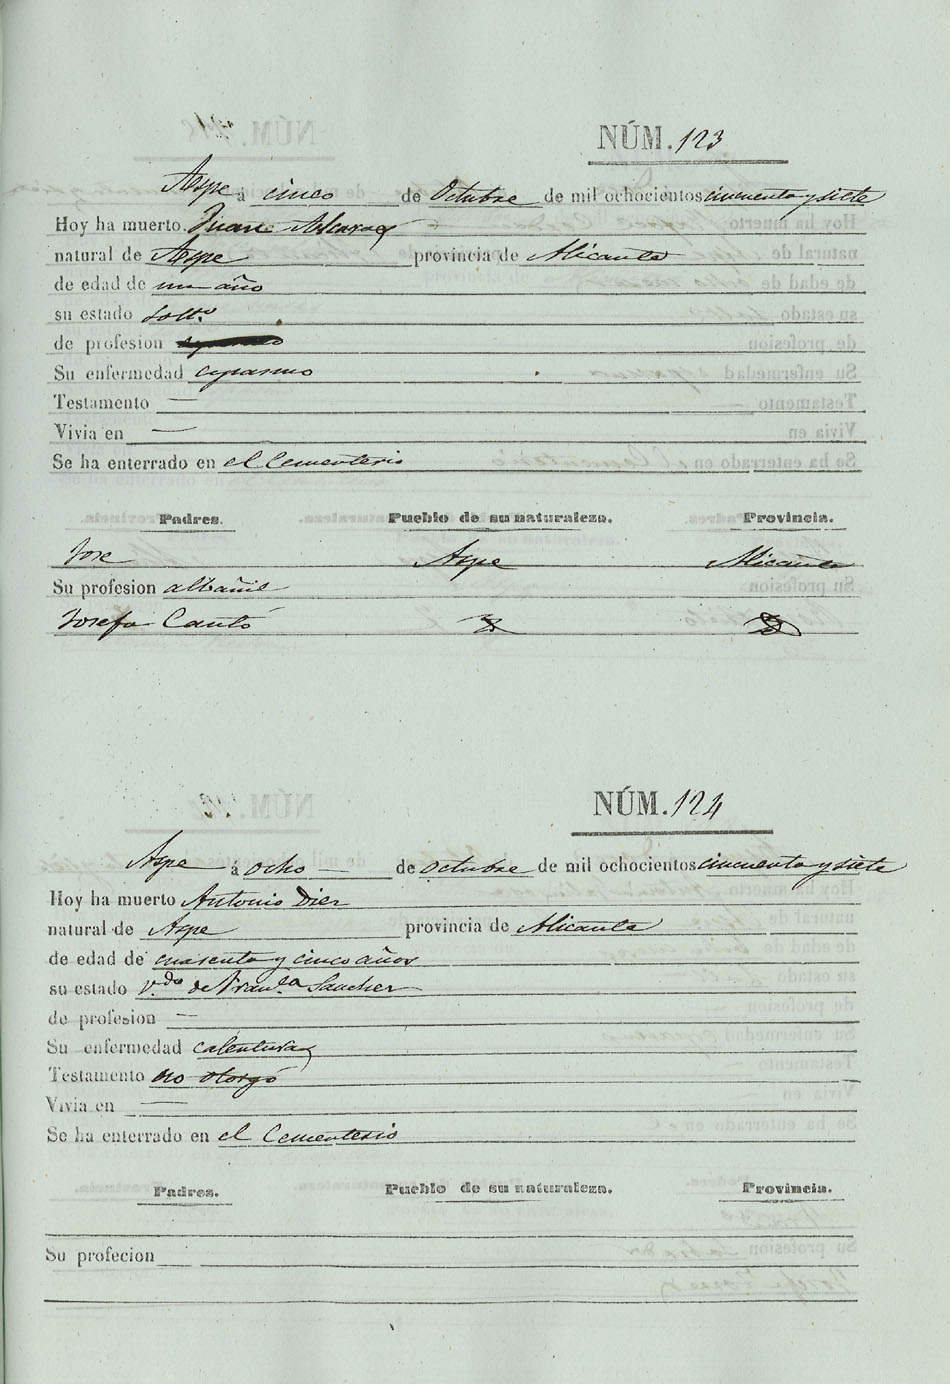 NÚM. 123
Aspe á cinco de Octubre de mil ochocientos cincuenta y siete
Hoy ha muerto Juan Alcaraz
natural de Aspe provincia de Alicante
de edad de un año
su estado Soltº
de profesion
Su enfermedad espasmo
Testamento —
Vivia en —
Se ha enterrado en el Cementerio
Padres. Pueblo de su naturaleza. Provincia.
Jose Aspe Alicante
Su profesion albañil
Josefa Cantó
NÚM. 124
Aspe á ocho — de octubre de mil ochocientos cincuenta y siete
Hoy ha muerto Antonio Diez
natural de Aspe provincia de Alicante
de edad de cuarenta y cinco años
su estado v.do de Fran.ca Sanchez
de profesion —
Su enfermedad calenturas
Testamento no otorgó
Vivia en —
Se ha enterrado en el Cementerio
Padres. Pueblo de su naturaleza. Provincia.
Su profecion